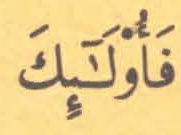 فَأُوْلَٰٓئِكَ